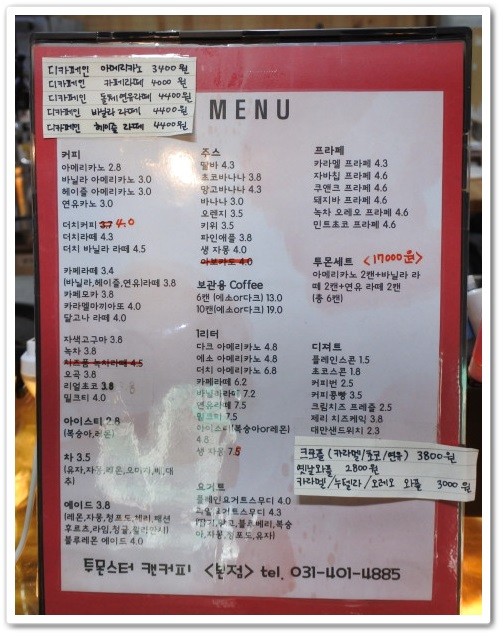 디카페인 아메리카노 3400원
디카페인 카페라떼 4000원
디카페인 돌체연유라떼 4400원
디카페인 바닐라 라떼 4400원
디카페인 헤이즐 라떼 4400원
MENU
커피
아메리카노 2.8
바닐라 아메리카노 3.0
헤이즐 아메리카노 3.0
연유카노 3.0
더치커피 3.7 4.0
더치라떼 4.3
더치 바닐라 라떼 4.5
카페라떼 3.4
(바닐라,헤이즐,연유)라떼 3.8
카페모카 3.8
카라멜마끼아또 4.0
달고나 라떼 4.0
자색고구마 3.8
녹차 3.8
치즈폼 녹차라떼 4.5
오곡 3.8
리얼초코 3.8
밀크티 4.0
아이스티 2.8
(복숭아,레몬)
차 3.5
(유자,자몽,레몬,오미자,배,대추)
에이드 3.8
(레몬,자몽,청포도,체리,패션
후르츠,라임,청귤,블리안시)
블루레몬 에이드 4.0
주스
딸바 4.3
초코바나나 3.8
망고바나나 4.3
바나나 3.0
오렌지 3.5
키위 3.5
파인애플 3.8
생 자몽 4.0
아보카도 4.0
보관용 Coffee
6캔 (에소or다크) 13.0
10캔(에소or다크) 19.0
1리터
다크 아메리카노 4.8
에소 아메리카노 4.8
더치 아메리카노 6.8
카페라떼 6.2
바닐라라떼 7.2
연유라떼 7.5
밀크티 7.5
아이스티(복숭아or레몬)
4.8
생 자몽 7.5
요거트
플레인요거트스무디 4.0
과일요거트스무디 4.3
(딸기,망고,블루베리,복숭
아,자몽,청포도,유자)
프라페
카라멜 프라페 4.3
자바칩 프라페 4.6
쿠앤크 프라페 4.6
돼지바 프라페 4.6
녹차 오레오 프라페 4.6
민트초코 프라페 4.6
투몬세트 <17000원>
아메리카노 2캔+바닐라 라
떼 2캔+연유 라떼 2캔
(총 6캔)
디저트
플레인스콘 1.5
초코스콘 1.8
커피번 2.5
커피콩빵 3.5
크림치즈 프레즐 2.5
제리 치즈케익 3.8
대만샌드위치 2.3
크로플 (카라멜/초코/연유) 3800원
옛날와플 2800원
카라멜/누텔라/오레오 와플 3000원
투몬스터 캔커피 <본점> tel. 031-401-4885